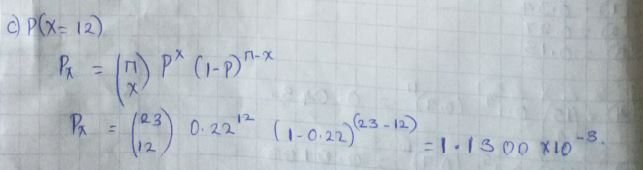 c) P(X = 12)
Px = (n x) P^x (1-P)^n-x
Px = (23 12) 0.22^12 (1-0.22)^(23-12) = 1.1300 x10^-3.